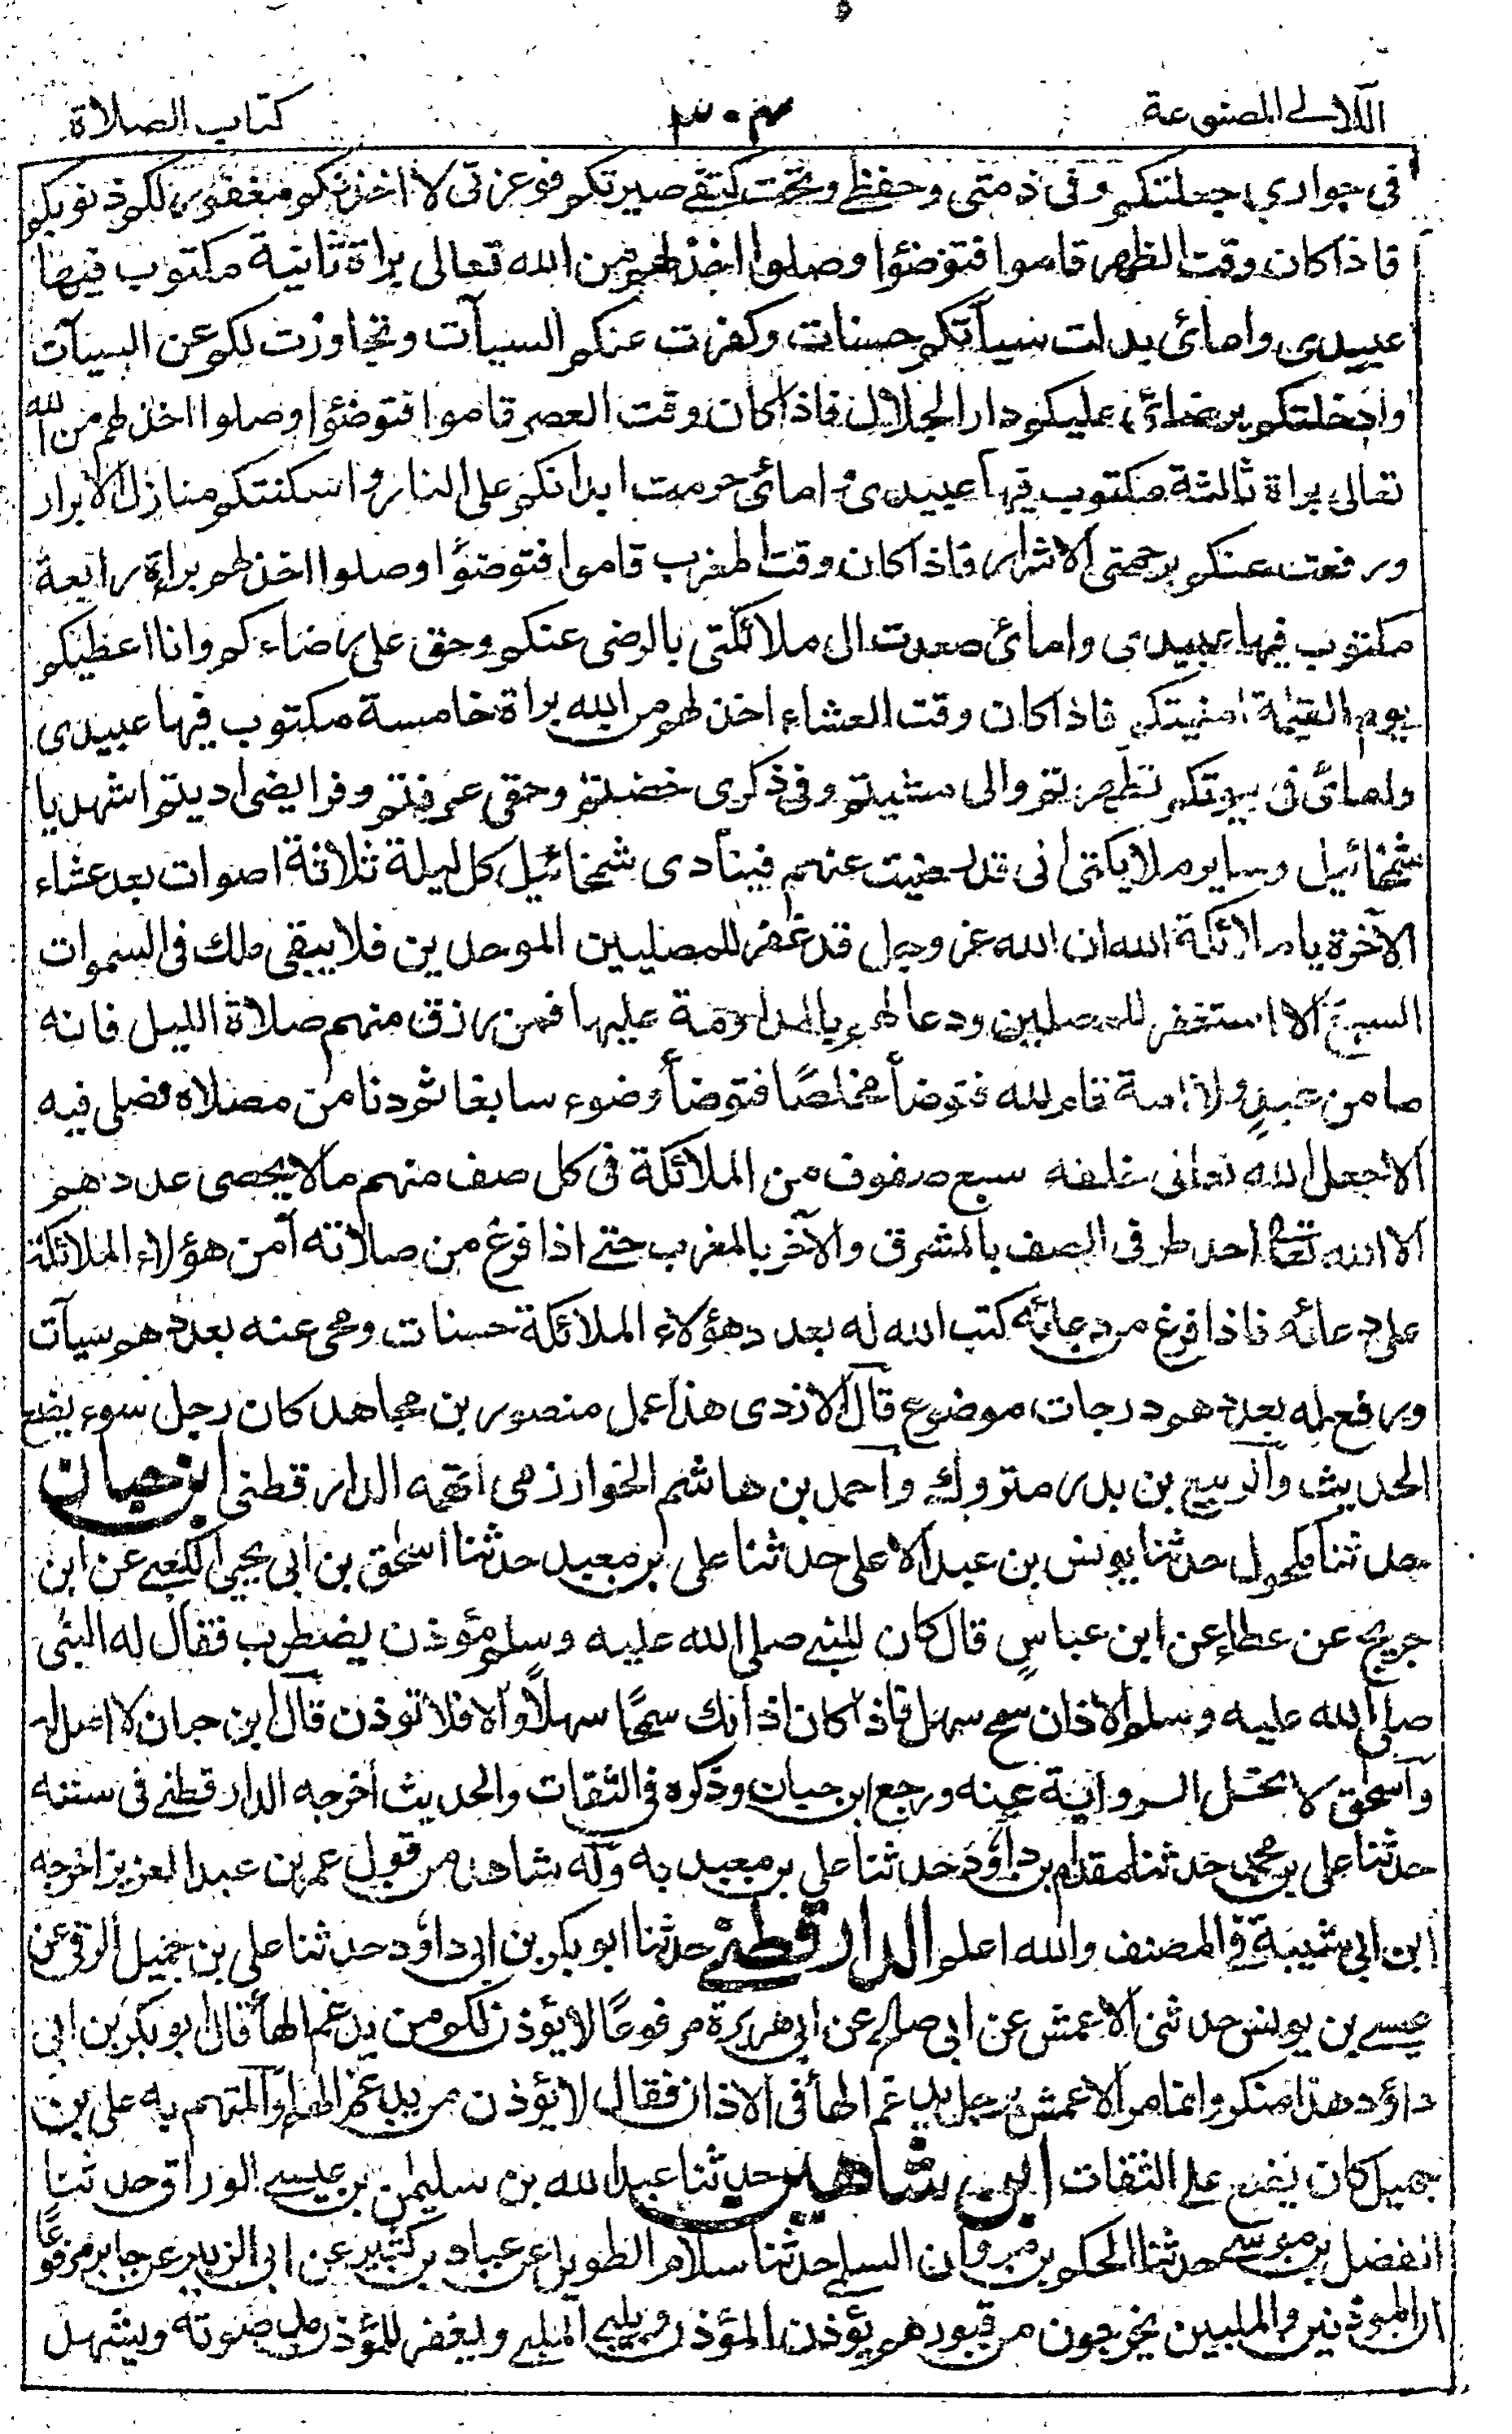 اللآلي المصنوعة ٣٠٣ كتاب الصلاة
في جواري جعلتكم وفي ذمتي وحفظي وتحت كنفي صيرتكم فوعزتي لا اخذلنكم مغفور لكم ذنوبكم
فاذا كان وقت الظهر قاموا فتوضئوا وصلوا اخذ لهم من الله تعالى براة ثانية مكتوب فيها
عبيدى وامائى بدلت سيآتكم حسنات وكفرت عنكم السيآت وتجاوزت لكم عن السيآت
وادخلتكم برضائى عليكم دار الجلال فاذا كان وقت العصر قاموا فتوضئوا وصلوا اخذ لهم من الله
تعالى براة ثالثة مكتوب فيها عبيدى وامائى حرمت ابدانكم على النار واسكنتكم منازل الابرار
ورفعت عنكم برحمتي الاشرار فاذا كان وقت المغرب قاموا فتوضؤا وصلوا اخذ لهم براة رابعة
مكتوب فيها عبيدى وامائى صعدت الى ملائكتى بالرضى عنكم وحق على رضاءكم وانا اعطيكم
يوم القيمة امنيتكم فاذا كان وقت العشاء اخذ لهم من الله براة خامسة مكتوب فيها عبيدى
وامائى في بيوتكم تطهرتم والى مشيتم وفي ذكرى خضتم وحقى عرفتم وفرايضى اديتم اشهد يا
شمخائيل وساير ملايكتى انى قد رضيت عنهم فينادى شمخائيل كل ليلة ثلاثة اصوات بعد عشاء
الآخرة يا ملائكة الله ان الله عز وجل قد غفر للمصليين الموحدين فلا يبقى ملك في السموات
السبع الا استغفر للمصلين ودعا لهم بالمداومة عليها فمن رزق منهم صلاة الليل فانه
ما من عبد ولا امة قام لله فتوضأ مخلصًا فتوضأ وضوء سابغا ثم دنا من مصلاه فصلى فيه
الا جعل الله تعالى خلفه سبع صفوف من الملائكة في كل صف منهم ما لا يحصى عددهم
الا الله تعالى احد طرفى الصف بالمشرق والآخر بالمغرب حتى اذا فرغ من صلاته آمن هؤلاء الملائكة
على دعائه فاذا فرغ من دعائه كتب الله له بعدد هؤلاء الملائكة حسنات ومحى عنه بعددهم سيآت
ويرفع له بعددهم درجات موضوع قال الازدى هذا عمل منصور بن مجاهد كان رجل سوء يضع
الحديث والربيع بن بدر متروك واحمد بن هاشم الخوارزمى اتهمه الدارقطنى ابن حبان
حدثنا مكحول حدثنا يونس بن عبد الاعلى حدثنا على بن معبد حدثنا اسحق بن ابى يحيى الكعبي عن ابن
جريج عن عطاء عن ابن عباس قال كان للنبي صلى الله عليه وسلم مؤذن يضطرب فقال له النبى
صلى الله عليه وسلم الاذان سمح سهل فاذا كان اذانك سمحًا سهلًا والا فلا تؤذن قال ابن حبان لا اصل له
واسحق لا تحل الرواية عنه ورجع ابن حبان وذكره في الثقات والحديث اخرجه الدارقطني في سننه
حدثنا على بن محمد حدثنا مقدام بن داؤد حدثنا على بن معبد به وله شاهد من قول عمر بن عبد العزيز اخرجه
ابن ابى شيبة في المصنف والله اعلم الدارقطني حدثنا ابو بكر بن ابى داؤد حدثنا على بن جميل الرقى عن
عيسى بن يونس حدثنى الاعمش عن ابى صالح عن ابى هريرة مرفوعًا لا يؤذن لكم من يدغم الهأ قال ابو بكر بن ابى
داؤد هذا منكر وانما مر الاعمش برجل يدغم الهأ في الاذان فقال لا يؤذن من يدغم الهأ والمتهم به على بن
جميل كان يضع على الثقات ابن شاهين حدثنا عبد الله بن سليمن بن عيسى الوراق حدثنا
الفضل بن موسى حدثنا الحكم بن مروان السلمي حدثنا سلام الطويل عن عباد بن كثير عن ابى الزبير عن جابر مرفوعًا
ان المؤذنين والملبين يخرجون من قبورهم يؤذن المؤذن ويلبي الملبي ويغفر للمؤذن مد صوته ويشهد